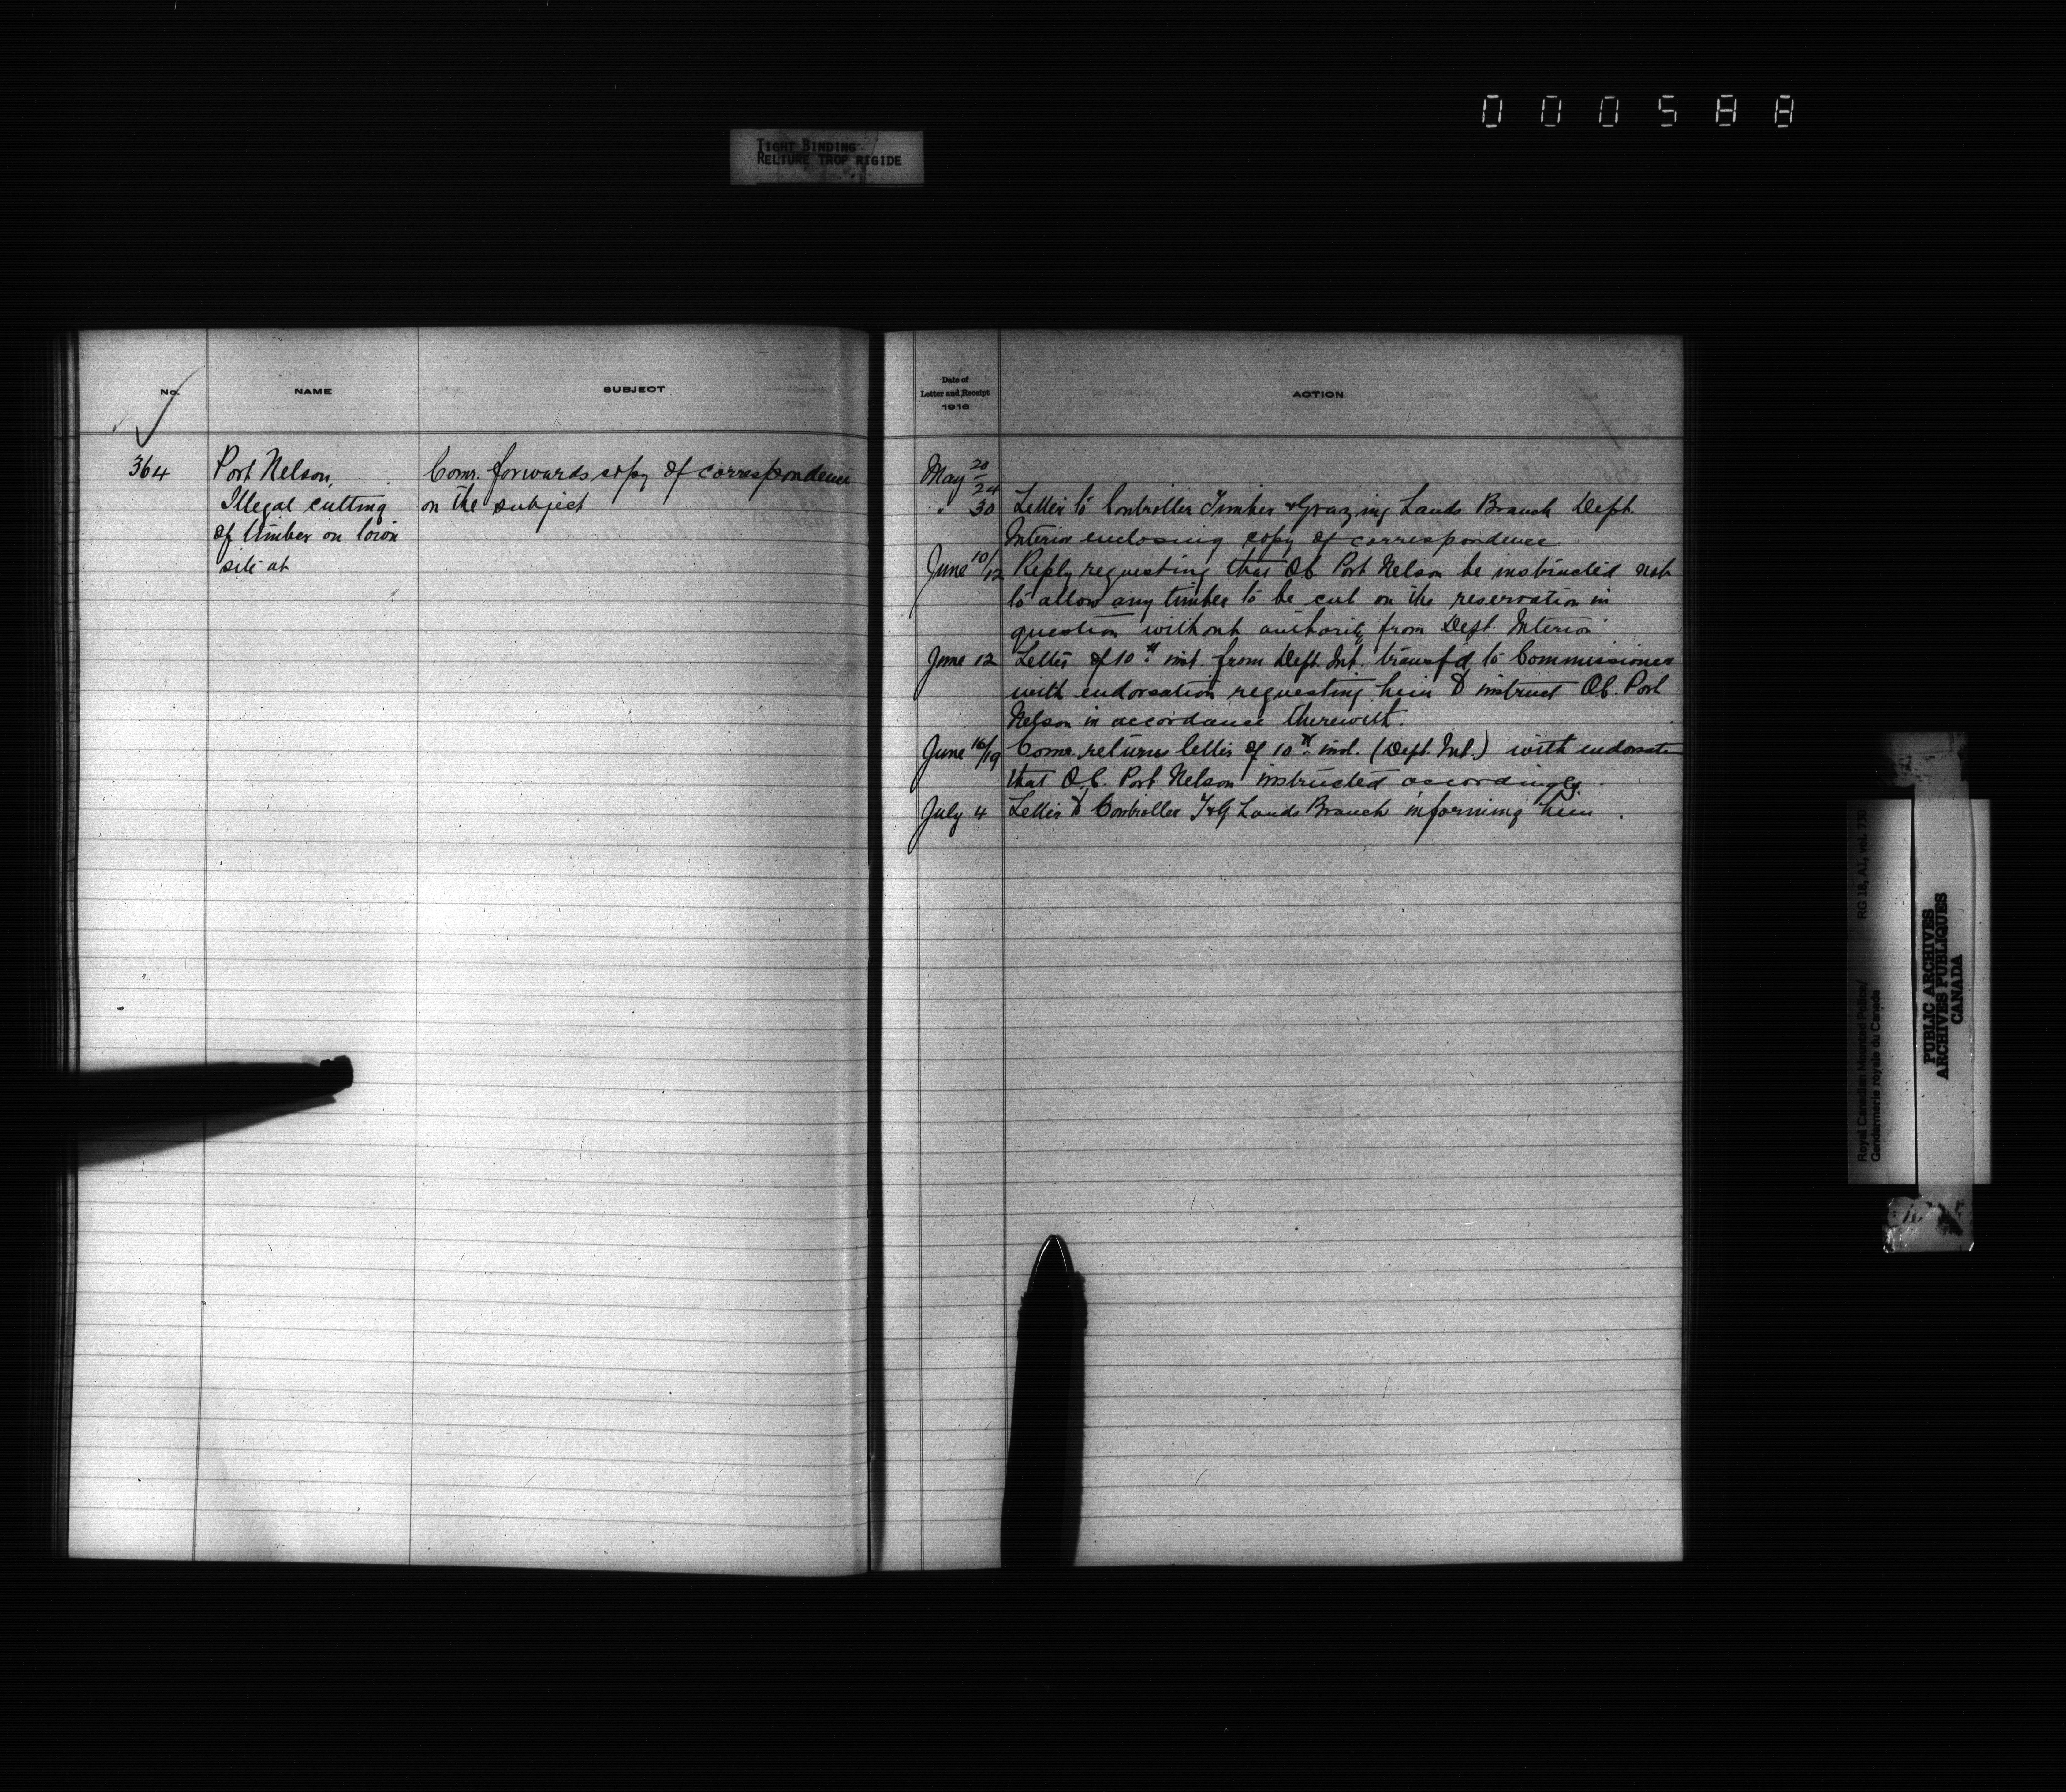 000588
TIGHT BINDING
RELIURE TROP RIGIDE
No.
NAME
SUBJECT
364
Port Nelson,
Illegal cutting
of timber on town
site at
Comr. forwards copy of correspondence
on the subject
Date of
Letter and Receipt
1916
ACTION
May 20/24
" 30 Letter to Controller Timber & Grazing Lands Branch Dept.
Interior enclosing copy of correspondence.
June 10/12 Reply requesting that O.C. Port Nelson be instructed not
to allow any timber to be cut on the reservation in
question without authority from Dept. Interior
June 12 Letter of 10th inst. from Dept. Int. transfd. to Commissioner
with endorsation requesting him to instruct O.C. Port
Nelson in accordance therewith.
June 16/19 Comr. returns letter of 10th inst. (Dept. Int.) with endorsation
that O.C. Port Nelson instructed accordingly.
July 4 Letter to Controller T & G Lands Branch informing him.
Royal Canadian Mounted Police/
Gendarmerie royale du Canada
RG 18, A1, vol. 730
PUBLIC ARCHIVES
ARCHIVES PUBLIQUES
CANADA